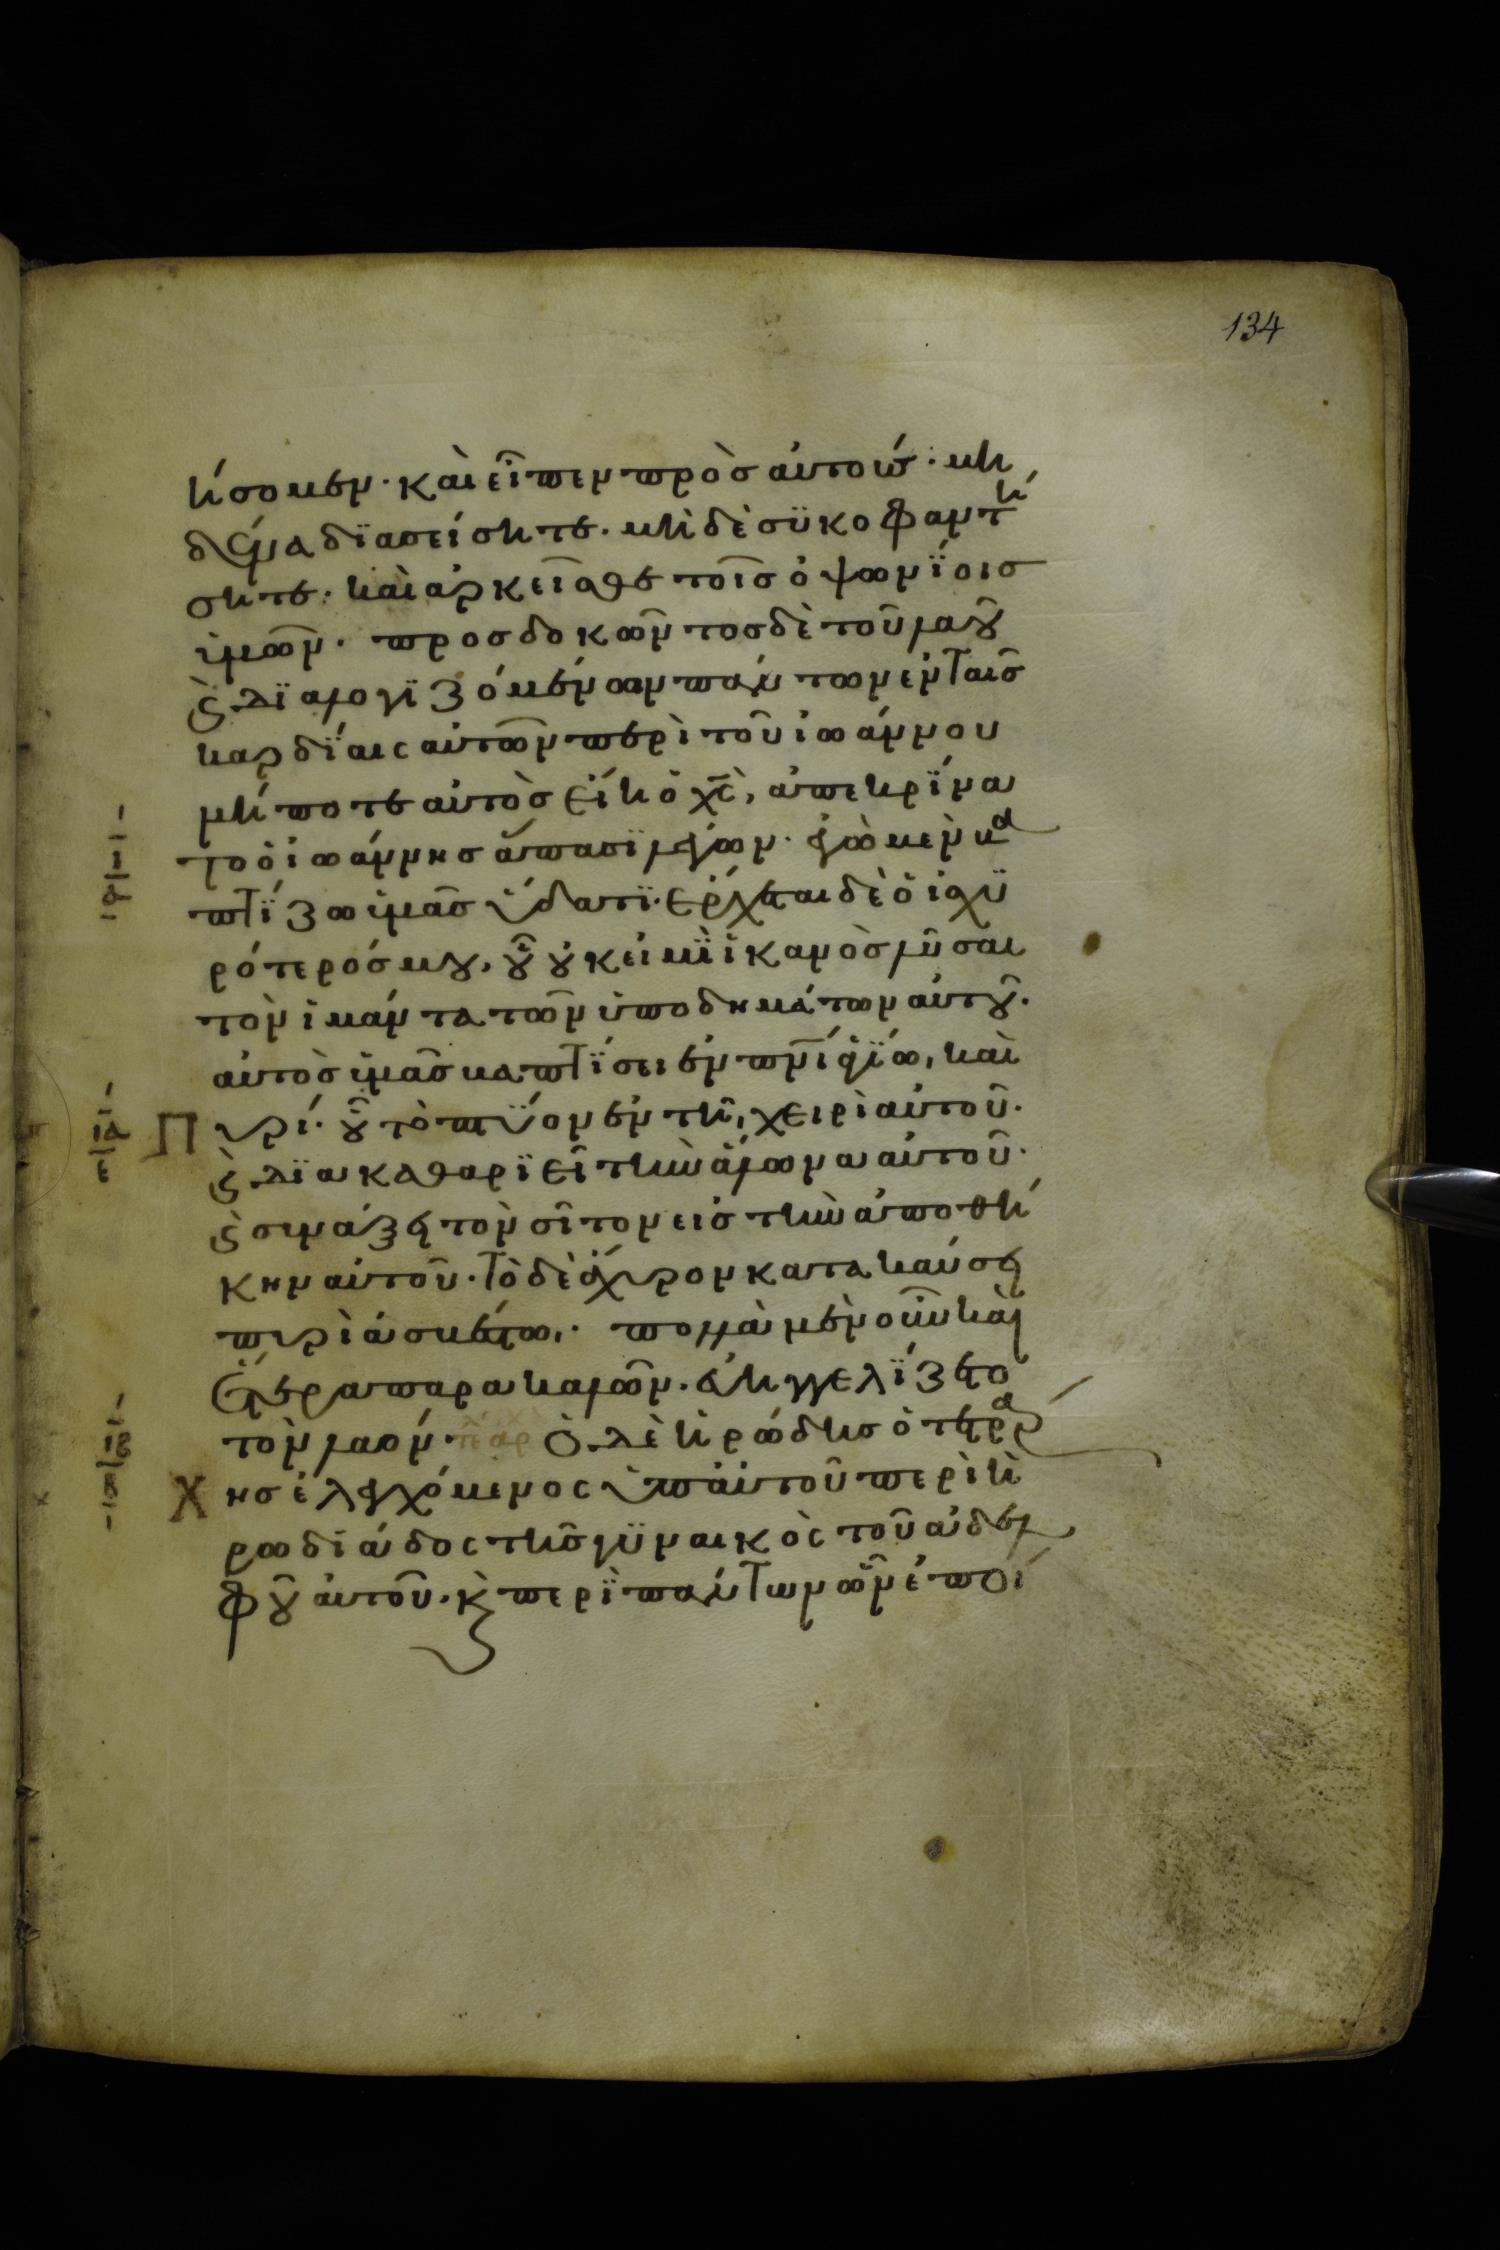 134
ήσομεν· καὶ εἶπεν πρὸσ αὐτούσ· μη
δένα διασείσητε· μὴ δὲ σϋκοφαντή
σητε· καὶ αρκεῖσθε τοῖσ ὀψωνΐοισ
ὑμῶν· προσδοκῶντοσ δὲ τοῦ λαοῦ
ϗ διαλογϊζόμένων πάντων ἐν ταισ
καρδΐαις αὐτῶν περὶ τοῦ ἰωάννου
μήποτε αὐτὸσ εἴη ὁ χσ̅, ἀπεκρΐνα
το ὁ ἰωάννησ ἅπασϊ λέγων· ἐγὼ μὲν βα
πτΐζω ὑμᾶσ ὕδατϊ· ἔρχεται δὲ ὁ ἰσχϋ
ρότεροσ μου, οὗ οὐκ εἰμῒ ἱκανὸσ λῦσαι
τὸν ἱμάντα τῶν ὑποδημάτων αὐτοῦ·
αὐτὸσ ὑμᾶσ βαπτΐσει ἐν πνι̅ ἁγΐω, καὶ
Πυρί· οὗ τὸ πτϋον ἐν τῆ, χειρὶ αὐτοῦ·
ϗ διακαθαρϊεῖ τὴν ἅλωνα αὐτοῦ·
ϗ συνάξει τὸν σῖτον εισ τὴν ἀποθή
κην αὐτοῦ· τὸ δὲ ἄχυρον κατακαύσει
πυρὶ ἀσβέστω,· πολλὰ μὲν οὖν καὶ
ἕτερα παρακαλῶν· εὐηγγελΐζετο
τὸν λαόν· Ὁ δὲ ἡρώδησ ὁ τετράρ
Χησ ἐλεγχόμενος ὑπ αὐτοῦ περὶ ἡ
ρωδϊάδος τῆσ γϋναικὸς τοῦ ἀδελ
φοῦ αὐτοῦ· κὲ περῒ πάντων ὧν ἐποί